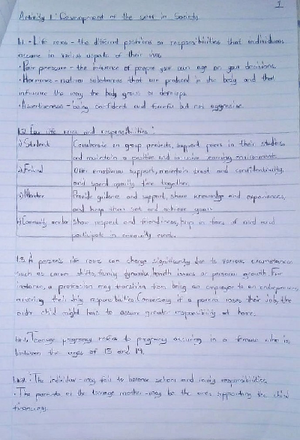 1
Activity 1: Development of the self in Society
1.1 - Life roles - the different positions or responsibilities that individuals
assume in various aspects of their lives.
• Peer pressure - the influence of people your own age on your decisions.
• Hormones - natural substances that are produced in the body and that
influence the way the body grows or develops.
• Assertiveness - being confident and forceful but not aggressive.
1.2 life roles and responsibilities:
1) Student Collaborate on group projects, support peers in their studies
and maintain a positive and learning environment.
2) Friend Offer emotional support, maintain trust and confidentiality
and spend quality time together.
3) Mentor Provide guidance and support, share knowledge and experiences,
and help them set and achieve goals.
4) Community member Show respect and friendliness, help in times of need and
participate in community events.
1.3 A person's life roles can change significantly due to various circumstances
such as career shifts, family dynamics, health issues or personal growth. For
instance, a person may transition from being an employee to an entrepreneur
their responsibilities. Conversely if a parent loses their job, the
child might have to assume greater responsibility at home.
1.4.1 Teenage pregnancy refers to pregnancy occurring in a female who is
between the ages of 13 and 19.
1.4.2 • The individual may fail to balance school and responsibilities.
• The parents of the teenage mother may be the ones supporting the child
financially.